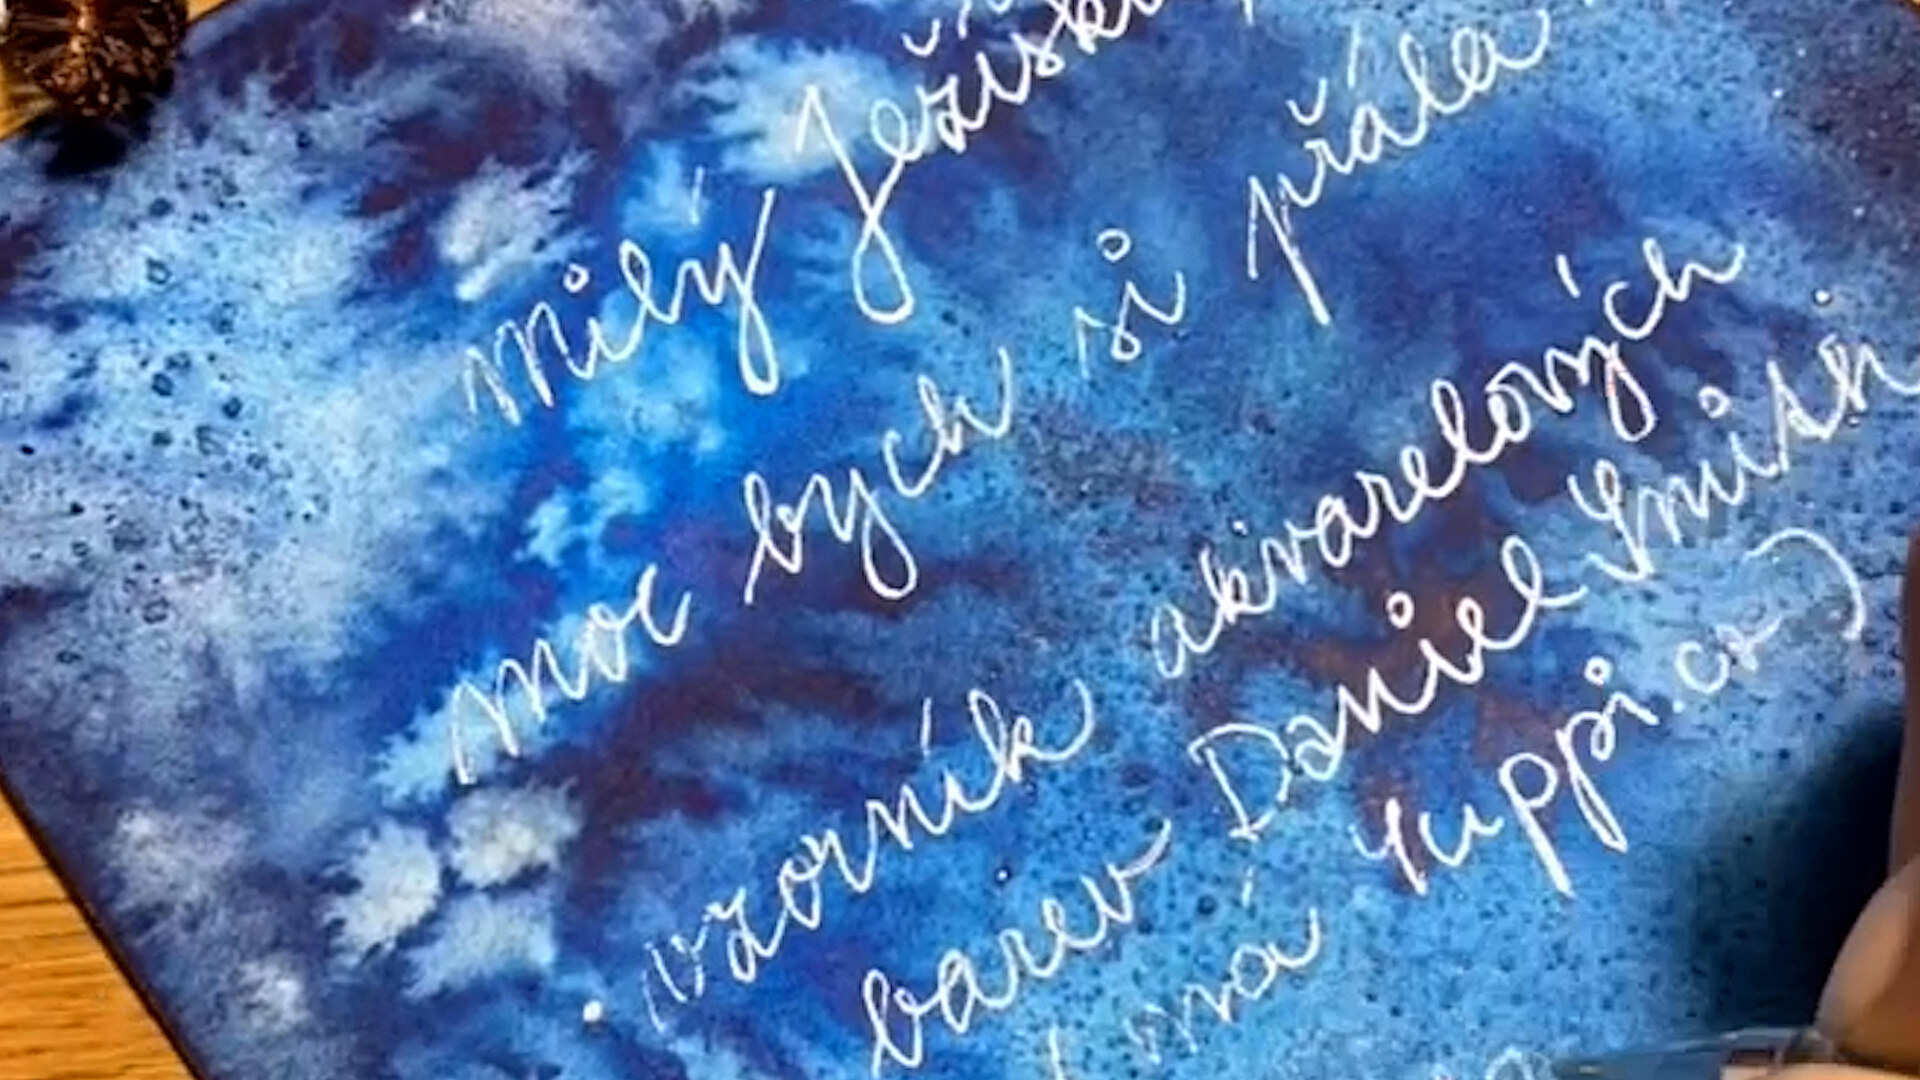 milý Ježíšku
moc bych si přála
• vzorník akvarelových
barev Daniel Smith
(má Yuppi.cz)